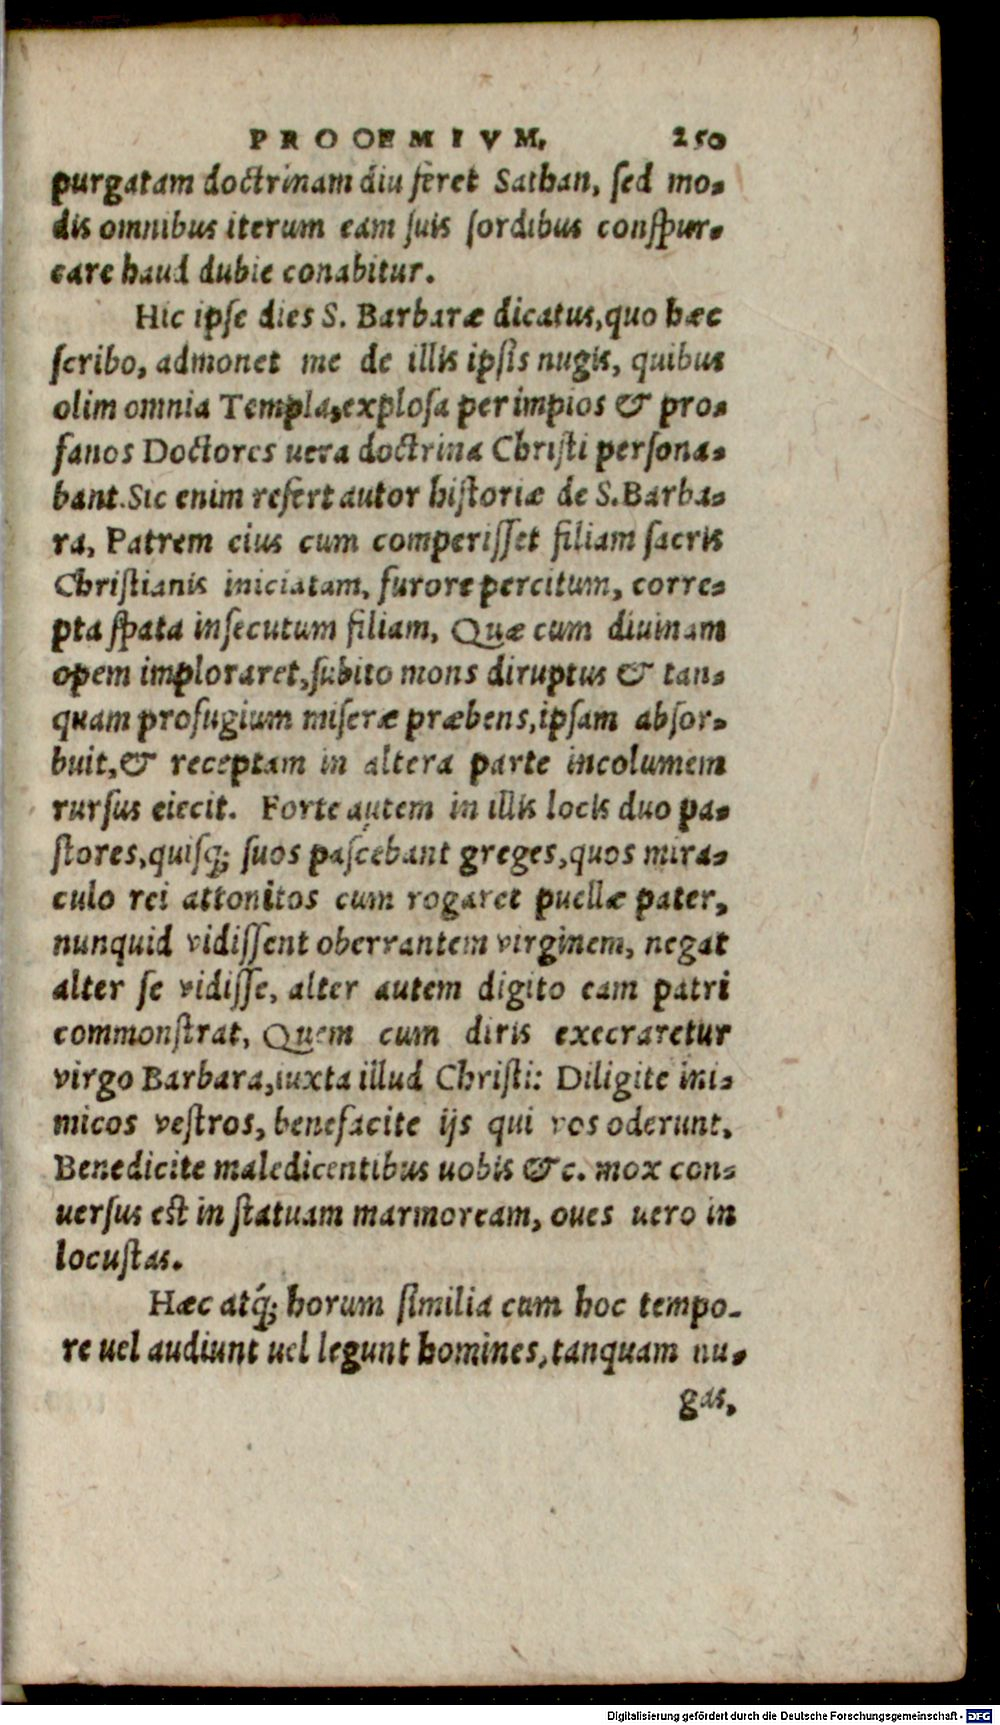 PROOEMIVM, 250
purgatam doctrinam diu feret Sathan, sed mo-
dis omnibus iterum eam suis sordibus conspur-
care haud dubie conabitur.
Hic ipse dies S. Barbaræ dicatus, quo hæc
scribo, admonet me de illis ipsis nugis, quibus
olim omnia Templa, explosa per impios & pro-
fanos Doctores uera doctrina Christi persona-
bant. Sic enim refert autor historiæ de S. Barba-
ra, Patrem eius cum comperisset filiam sacris
Christianis iniciatam, furore percitum, corre-
pta spata insecutum filiam, Quæ cum diuinam
opem imploraret, subito mons diruptus & tan-
quam profugium miseræ præbens, ipsam absor-
buit, & receptam in altera parte incolumem
rursus eiecit. Forte autem in illis locis duo pa-
stores, quisq; suos pascebant greges, quos mira-
culo rei attonitos cum rogaret puellæ pater,
nunquid vidissent oberrantem virginem, negat
alter se vidisse, alter autem digito eam patri
commonstrat, Quem cum diris execraretur
virgo Barbara, iuxta illud Christi: Diligite ini-
micos vestros, benefacite ijs qui vos oderunt.
Benedicite maledicentibus uobis &c. mox con-
uersus est in statuam marmoream, oues uero in
locustas.
Hæc atq́; horum similia cum hoc tempo-
re uel audiunt uel legunt homines, tanquam nu-
gas,
Digitalisierung gefördert durch die Deutsche Forschungsgemeinschaft - DFG